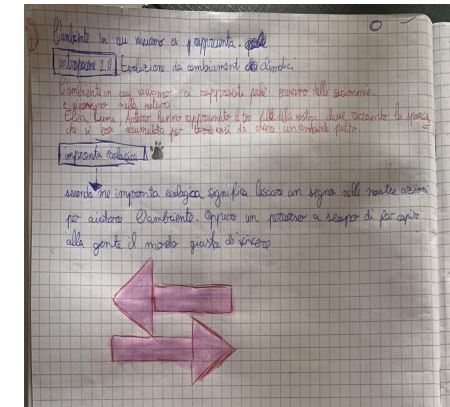 L'ambiente in cui viviamo ci rappresenta.
antropocene 2.0 Evoluzione dei cambiamenti climatici
L'ambiente in cui viviamo ci rappresenta però
e viviamo nella natura.
Elisa, Luna, Arturo hanno rappresentato della nostra classe, raccontando la sporca
che si era accumulata per terra così da avere un ambiente pulito.
impronta ecologica
secondo me impronta ecologica significa lasciare un segno nelle nostre azioni
per aiutare l'ambiente. Oppure un percorso a scopo di far capire
alla gente il modo giusto di vivere